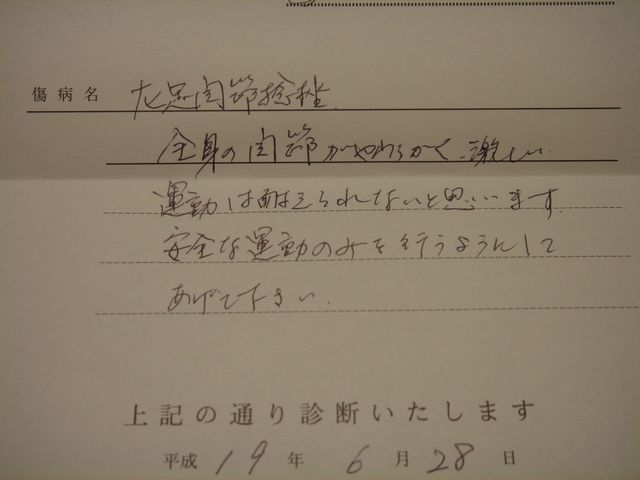 傷病名 左足関節捻挫.
全身の関節がやわらかく、激しい
運動は耐えられないと思います.
安全な運動のみを行うようにして
あげて下さい.
上記の通り診断いたします
平成 19 年 6 月 28 日